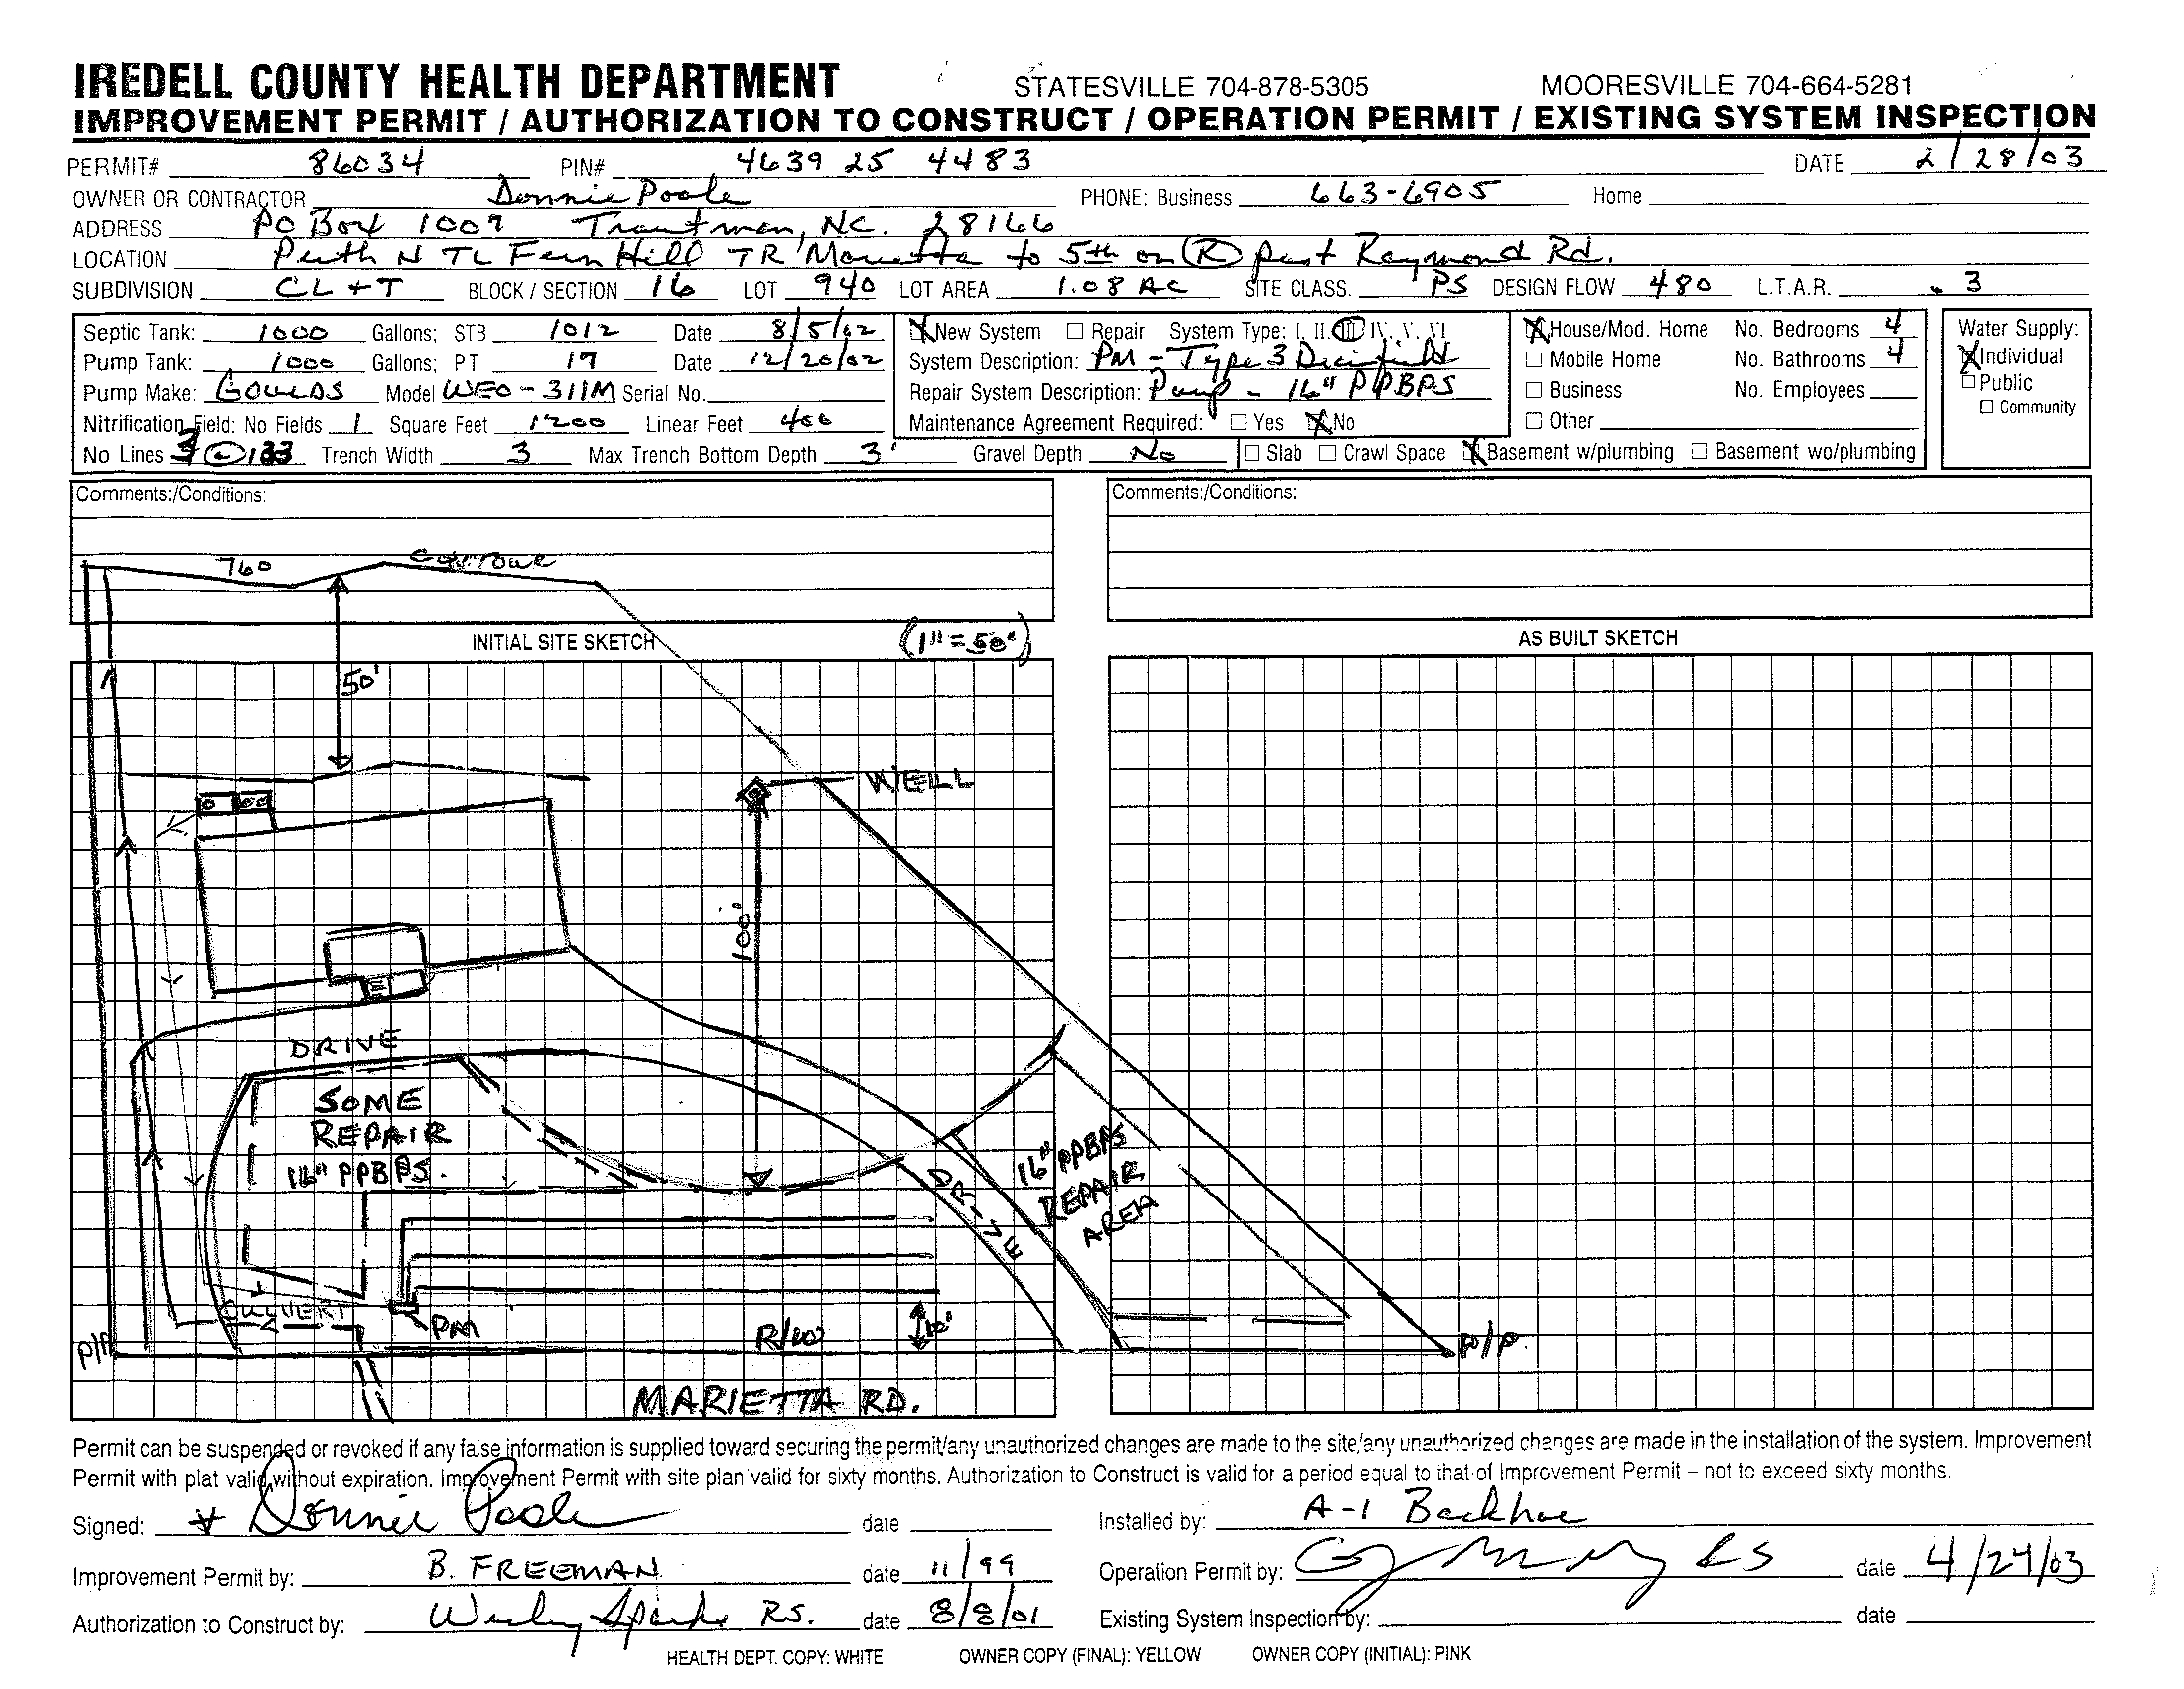 IREDELL COUNTY HEALTH DEPARTMENT STATESVILLE 704-878-5305 MOORESVILLE 704-664-5281
IMPROVEMENT PERMIT / AUTHORIZATION TO CONSTRUCT / OPERATION PERMIT / EXISTING SYSTEM INSPECTION
PERMIT# 86034 PIN# 4639 25 4483 DATE 2/28/03
OWNER OR CONTRACTOR Donnie Poole PHONE: Business 663-6905 Home
ADDRESS PO Box 1009 Troutman, NC. 28166
LOCATION Perth N TL Fern Hill TR Marietta to 5th on (R) past Raymond Rd.
SUBDIVISION CL+T BLOCK / SECTION 16 LOT 940 LOT AREA 1.08 AC SITE CLASS. PS DESIGN FLOW 480 L.T.A.R. .3
Septic Tank: 1000 Gallons; STB 1012 Date 8/5/02 X New System ☐ Repair System Type: I, II, III, IV, V, VI X House/Mod. Home No. Bedrooms 4 Water Supply:
Pump Tank: 1000 Gallons; PT 19 Date 12/20/02 System Description: PM - Type 3 Drainfield ☐ Mobile Home No. Bathrooms 4 X Individual
Pump Make: GOULDS Model WEO-311M Serial No. Repair System Description: Pump - 16" PPBPS ☐ Business No. Employees ☐ Public
Nitrification Field: No Fields 1 Square Feet 1200 Linear Feet 400 Maintenance Agreement Required: ☐ Yes X No ☐ Other ☐ Community
No Lines 3 @ 133 Trench Width 3 Max Trench Bottom Depth 3' Gravel Depth No ☐ Slab ☐ Crawl Space X Basement w/plumbing ☐ Basement wo/plumbing
Comments:/Conditions: Comments:/Conditions:
760 CONTOUR
INITIAL SITE SKETCH (1"=50') AS BUILT SKETCH
50'
WELL
100'
DRIVE
SOME
REPAIR
16" PPBPS.
DRIVE
16" PPBPS
REPAIR
AREA
CULVERT
PM
R/W
10'
P/P
P/P.
MARIETTA RD.
Permit can be suspended or revoked if any false information is supplied toward securing the permit/any unauthorized changes are made to the site/any unauthorized changes are made in the installation of the system. Improvement
Permit with plat valid without expiration. Improvement Permit with site plan valid for sixty months. Authorization to Construct is valid for a period equal to that of Improvement Permit – not to exceed sixty months.
Signed: Donnie Poole date Installed by: A-1 Backhoe
Improvement Permit by: B. FREEMAN date 11/99 Operation Permit by: RS date 4/24/03
Authorization to Construct by: Wesley Sparks R.S. date 8/8/01 Existing System Inspection by: date
HEALTH DEPT. COPY: WHITE OWNER COPY (FINAL): YELLOW OWNER COPY (INITIAL): PINK